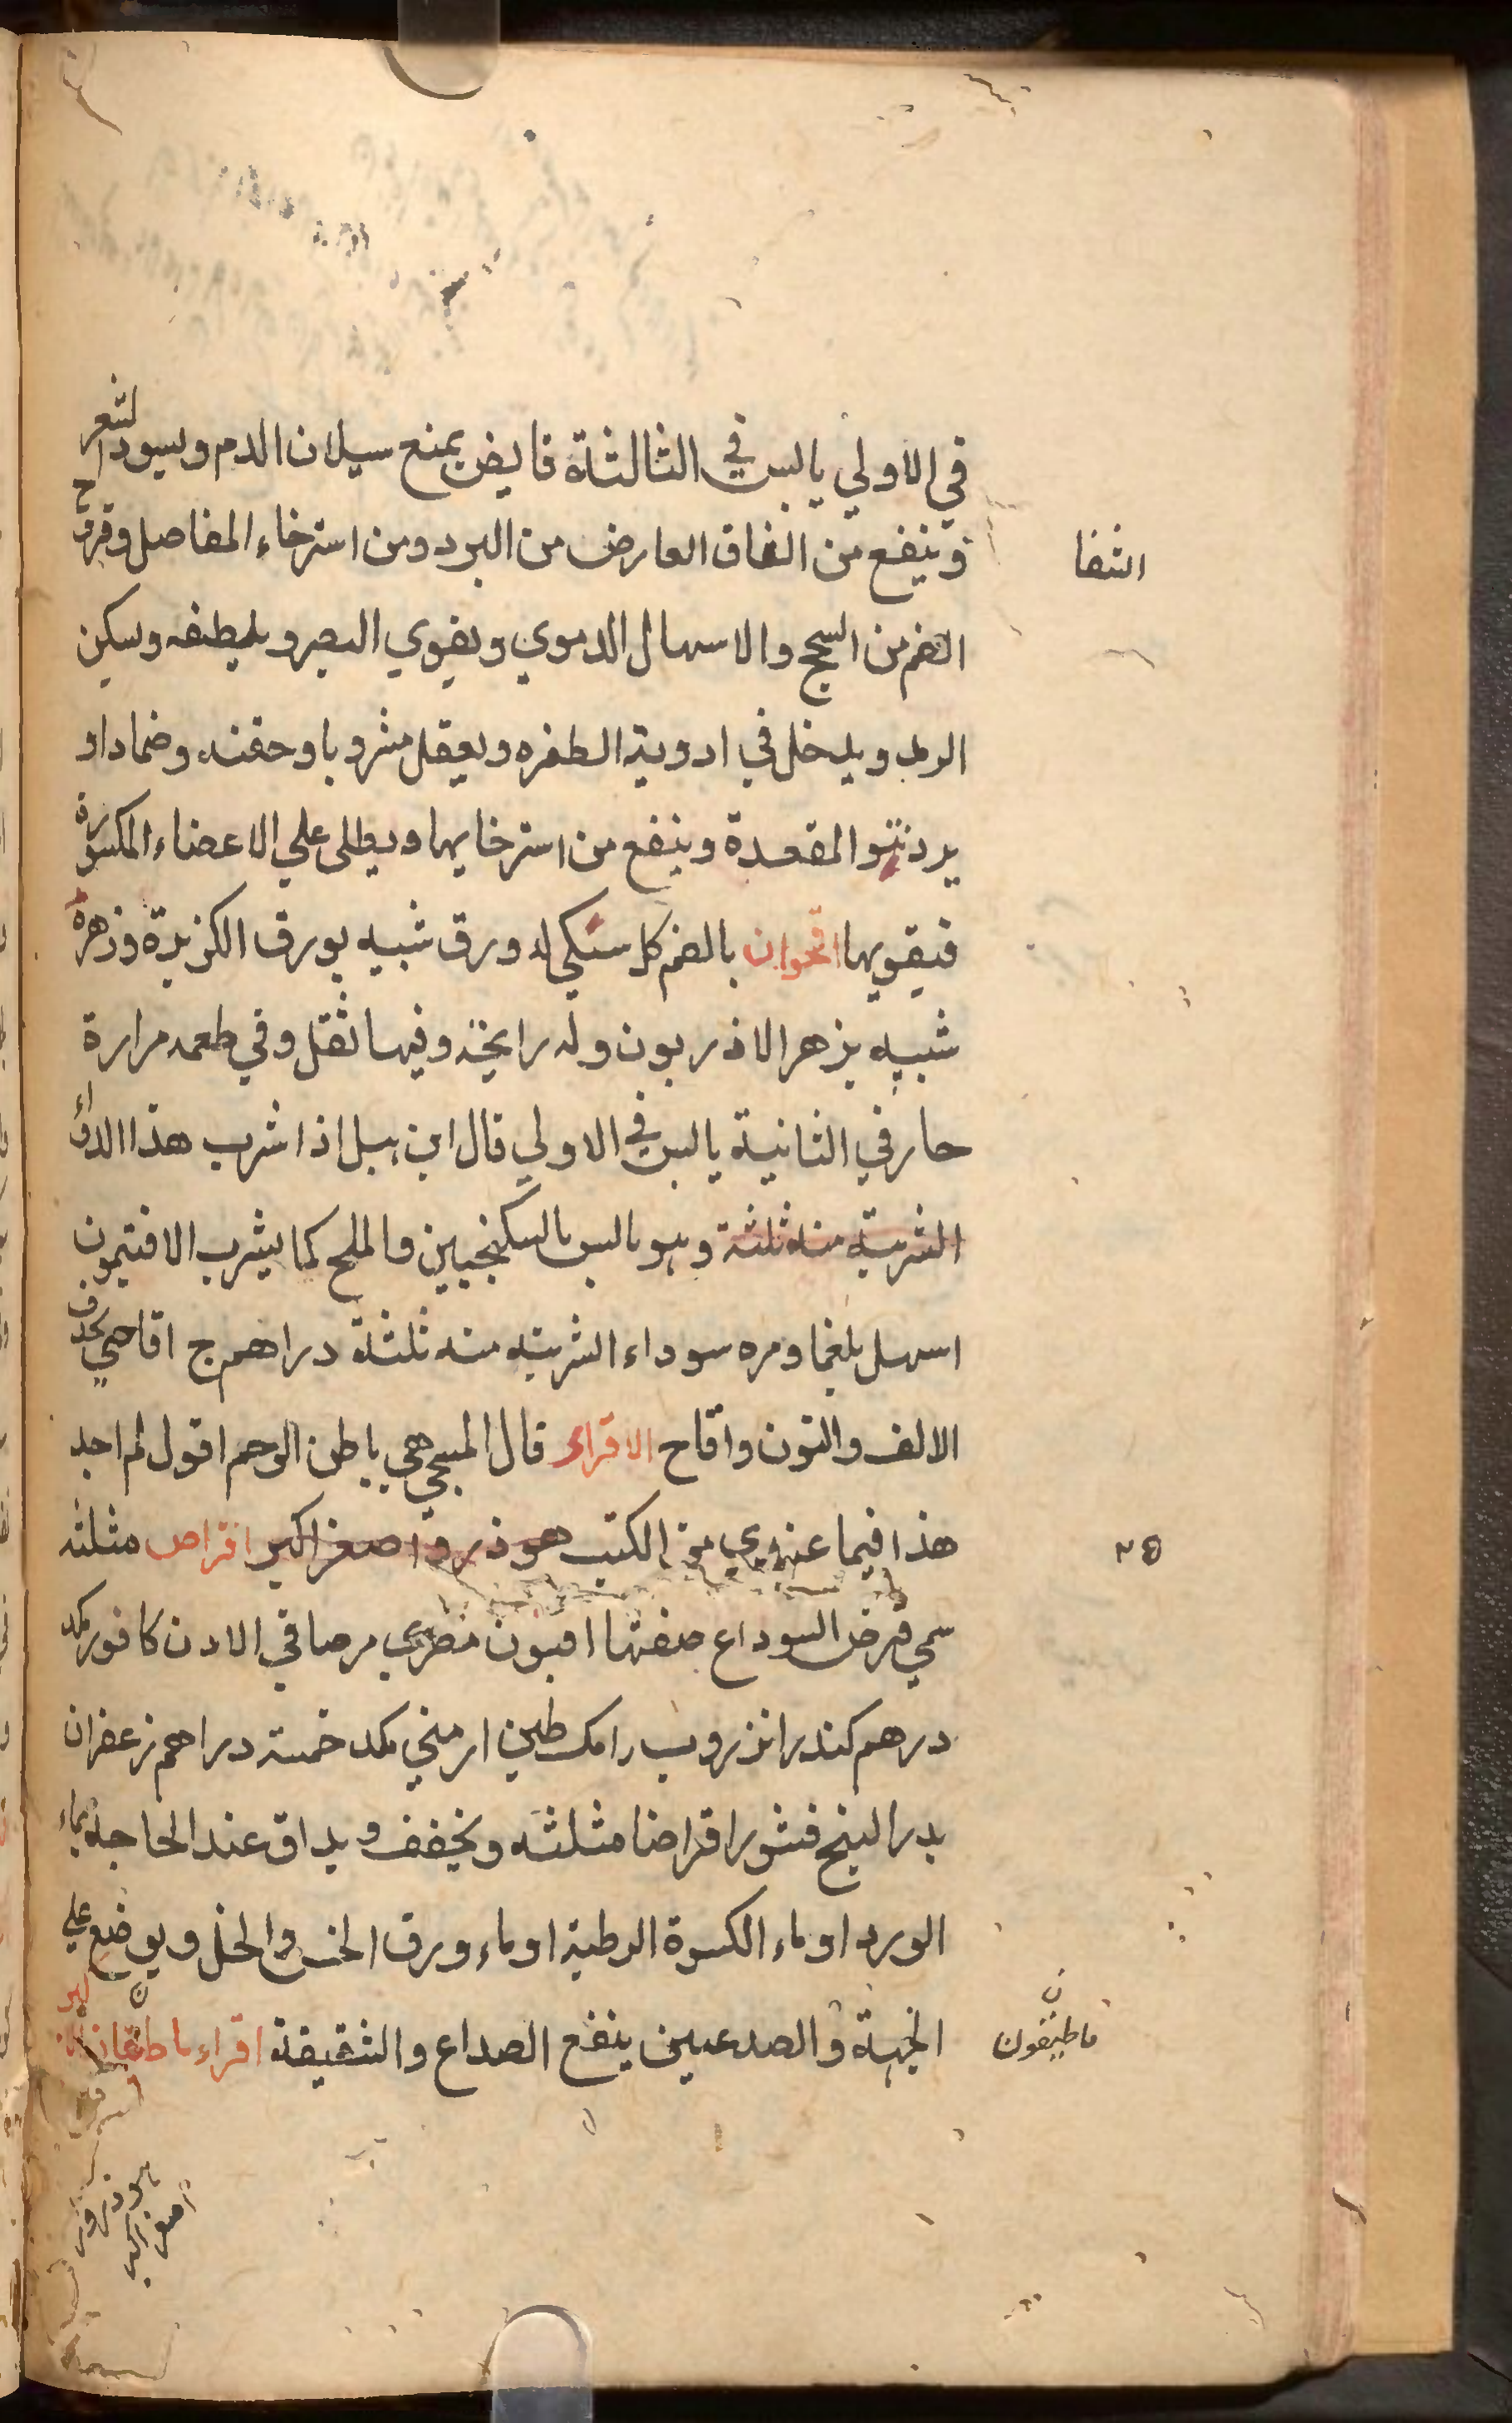 في الاولي يابس في الثالثلة قابض يمنع سيلان الدم ويسود الشعر
وينفع من الفاق العارض من البرد ومن استرخاء المفاصل وقروح
الشفا
الفم من السحج والاسهال الدموي ويقوي البصر ويلطفه ويسكن
الرمد ويدخل في ادوية الظفره ويعقل مشروبا وحقنه وضمادا و
يرد نتو المقعدة وينفع من استرخايها ويطلى علي الاعضاء المكسورة
فيقويها اقحوان بالضم كل سنكي له ورق شبيه بورق الكزبرة وزهره
شبيه بزهر الاذربون وله رايحة وفيها ثقل وفي طعمه مرارة
حار في الثانية يابس في الاولي قال ابن هبل اذا شرب هذا الدواء
الشربته منه ثلثة وهو يابس بالسكنجبين والملح كما يشرب الافتيمون
اسهل بلغما ومره سوداء الشربته منه ثلثة دراهم ج اقاحي بحذف
الالف والنون واقاح الاقراء قال المسيحي هي باطن الرحم اقول لم اجد
هذا فيما عندي من الكتب هو ذرور اصغر اكبر اقراص مثلثه
سمي قرص السوداع صفتها افيون مصري مر صافي الادن كافور مكد
درهم كندر انزروب رامك طين ارمني مكد خمسة دراهم زعفران
بدر البنج فنثور اقراضا مثلثه ويخفف ويداق عند الحاجة بماء
الورد او ماء الكسوة الرطبة او ماء ورق الخس والخل ويوضع علي
الجبهة والصدعين ينفع الصداع والشقيقة اقراء
ماطيقون
هو ذرور
اصغر اكبر